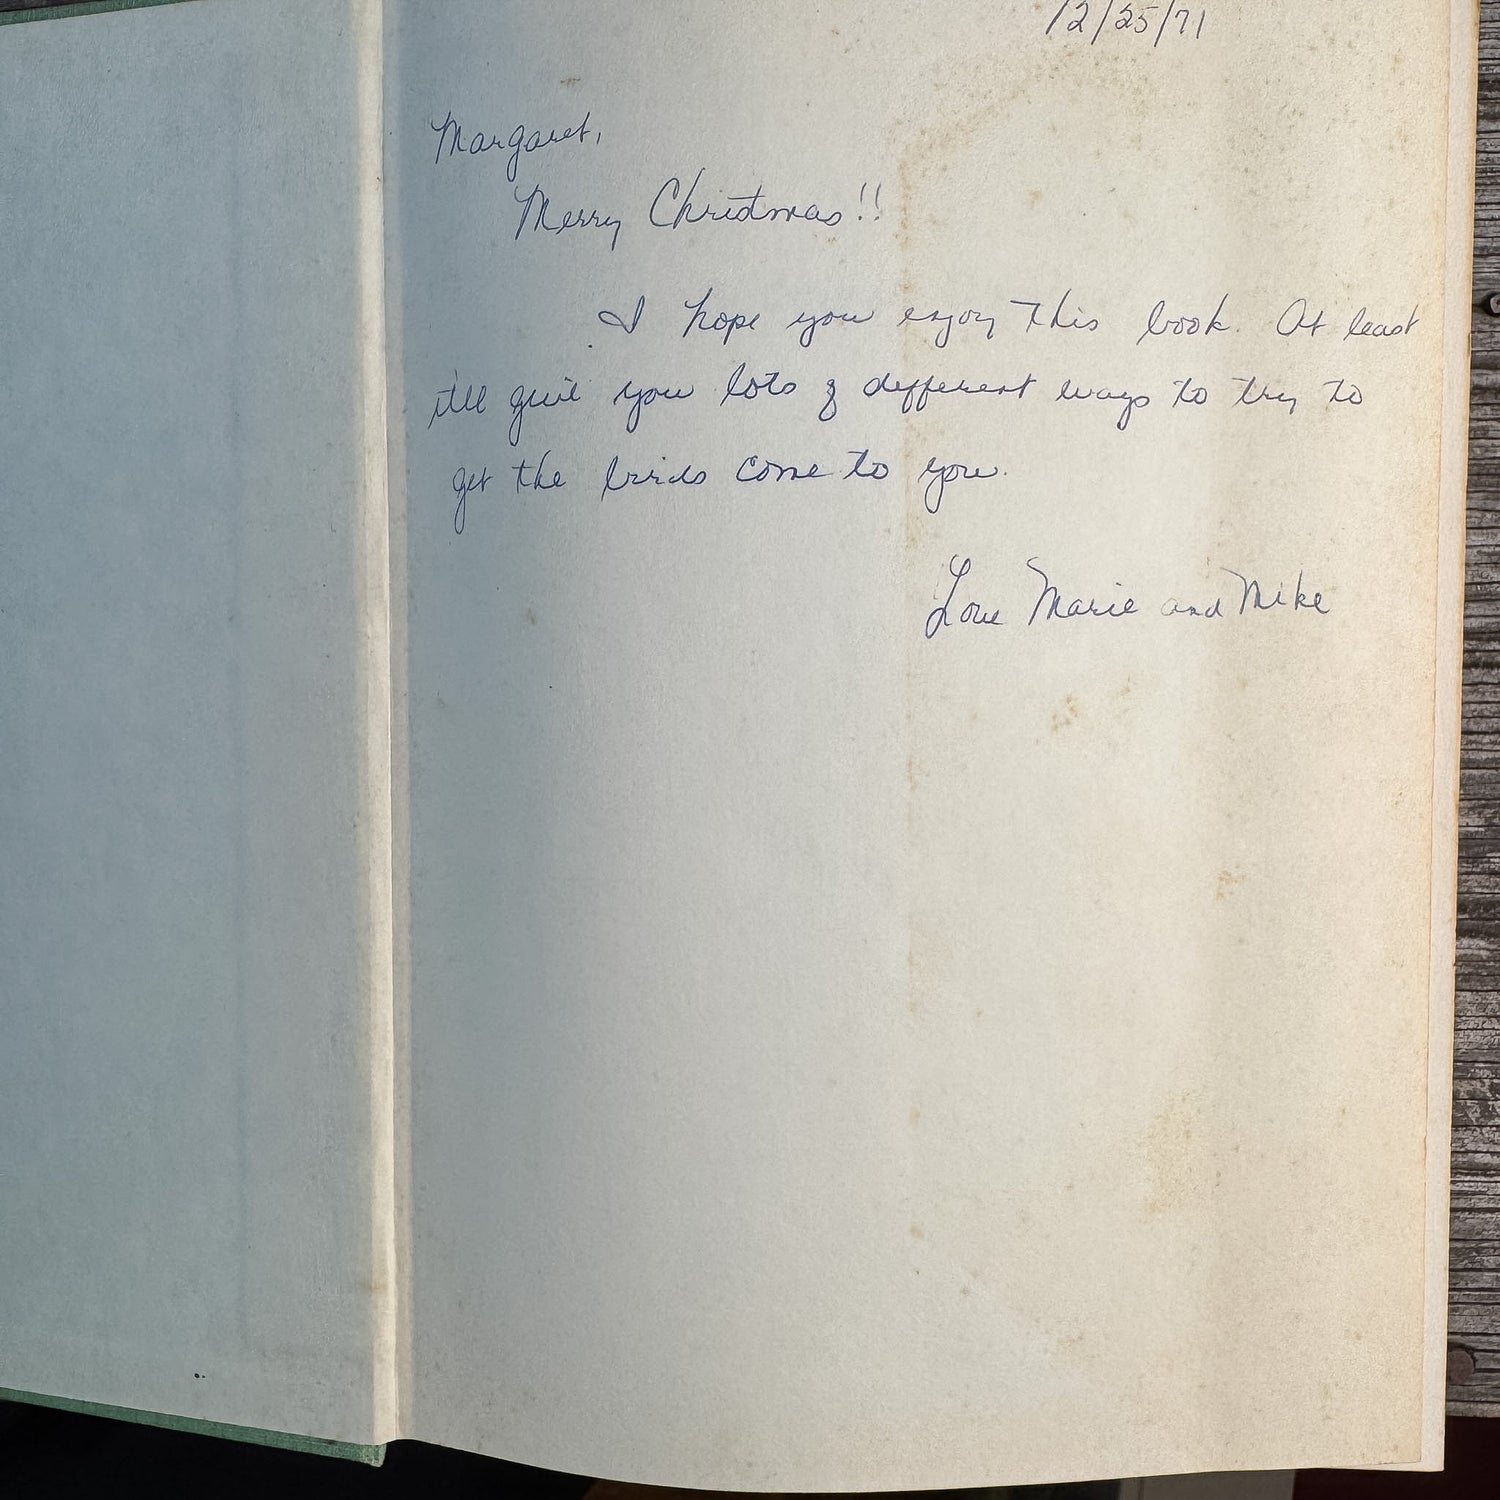 12/25/71
Margaret,
Merry Christmas!!
I hope you enjoy this book. At least
it'll give you lots of different ways to try to
get the birds come to you.
Love Marie and Mike